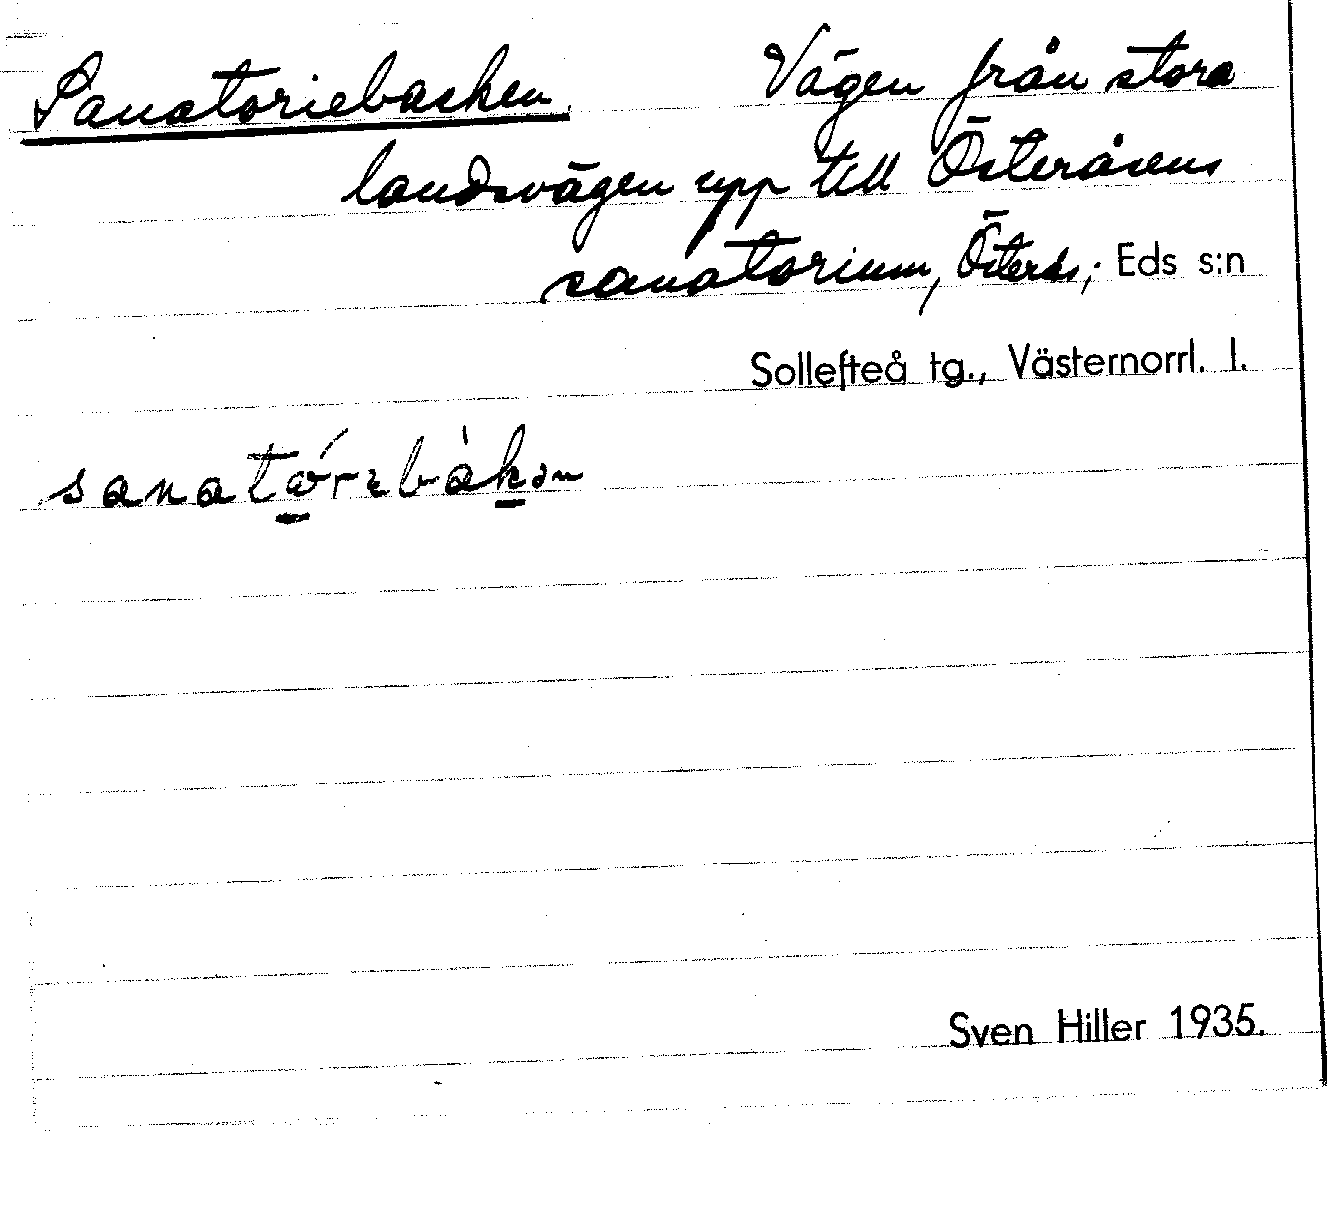 Sanatoriebacken. Vägen från stora
landsvägen upp till Österåsens
sanatorium, Österås; Eds s:n
Sollefteå tg., Västernorrl. l.
Sven Hiller 1935.